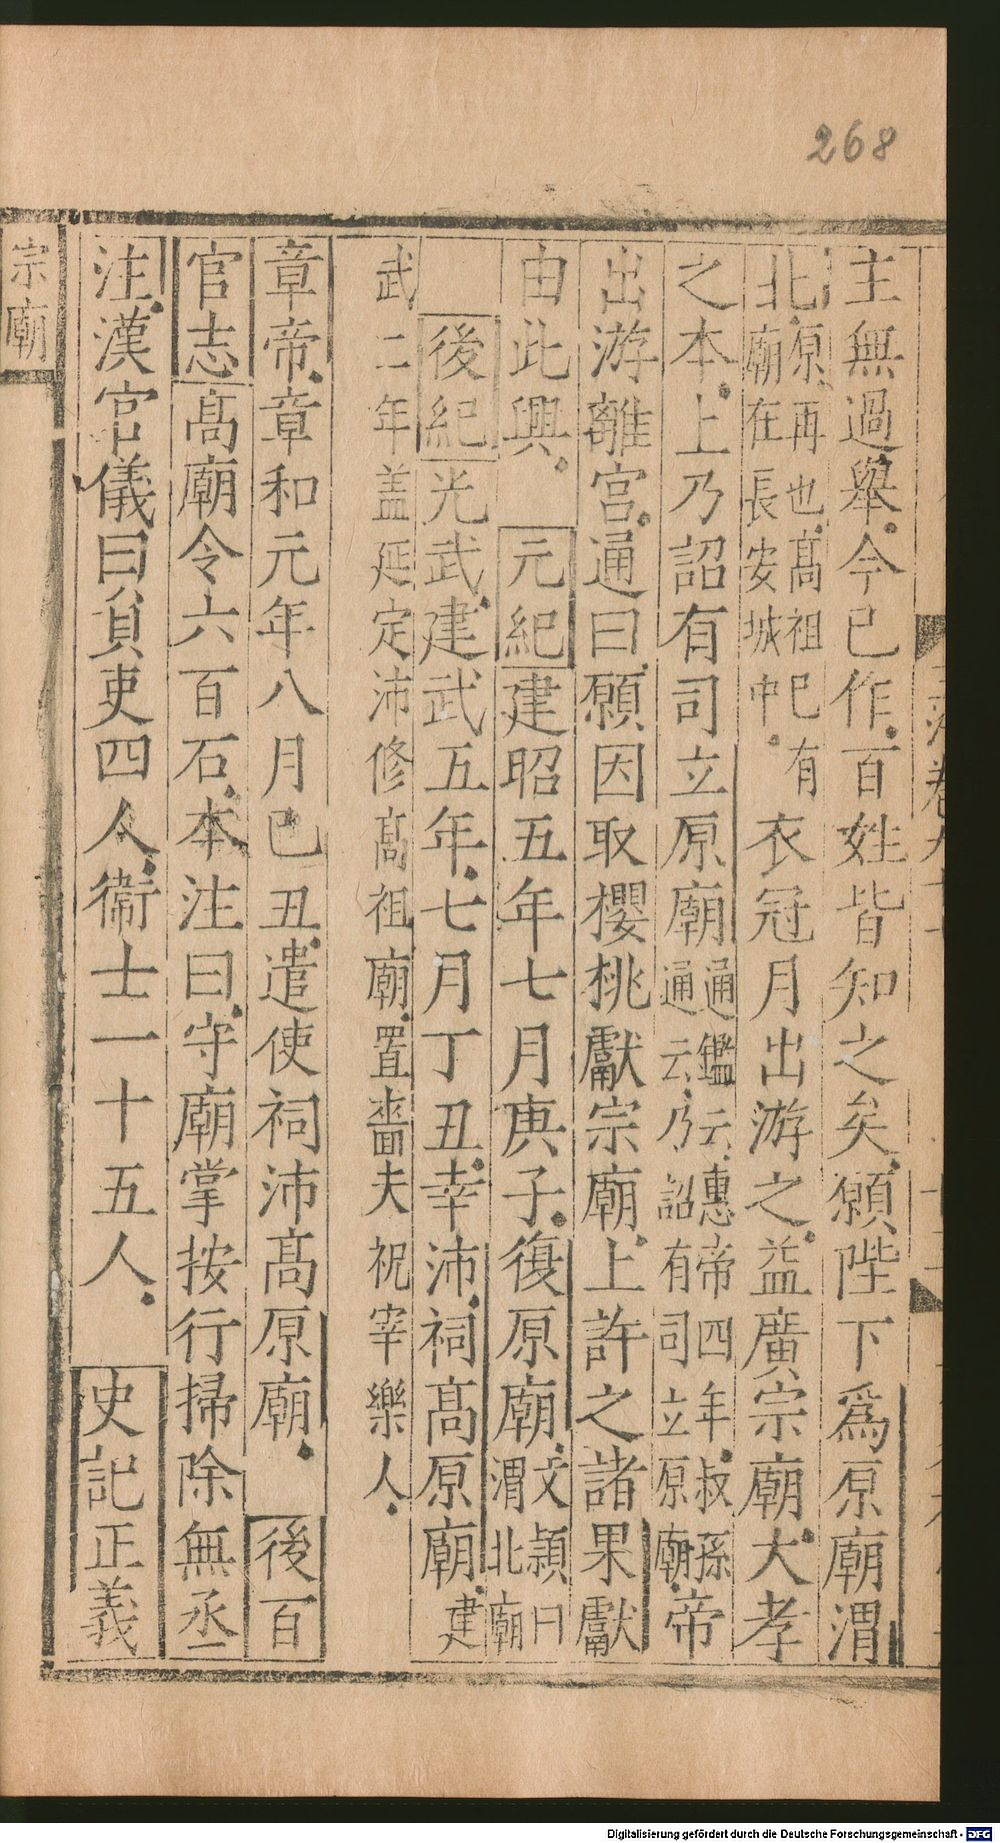 268
主無過舉今已作百姓皆知之矣願陛下爲原廟渭
北原再也高祖已有廟在長安城中衣冠月出游之益廣宗廟大孝
之本上乃詔有司立原廟通鑑云惠帝四年叔孫通云乃詔有司立原廟帝
出游離宫通曰願因取櫻桃獻宗廟上許之諸果獻
由此興 元紀建昭五年七月庚子復原廟文頴曰渭北廟
後紀光武建武五年七月丁丑幸沛祠高原廟建
武二年盖延定沛修高祖廟置嗇夫祝宰樂人
章帝章和元年八月已丑遣使祠沛高原廟 後百
官志高廟令六百石本注曰守廟掌按行掃除無丞
注漢官儀曰員吏四人衞士一十五人 史記正義
宗廟
Digitalisierung gefördert durch die Deutsche Forschungsgemeinschaft - DFG